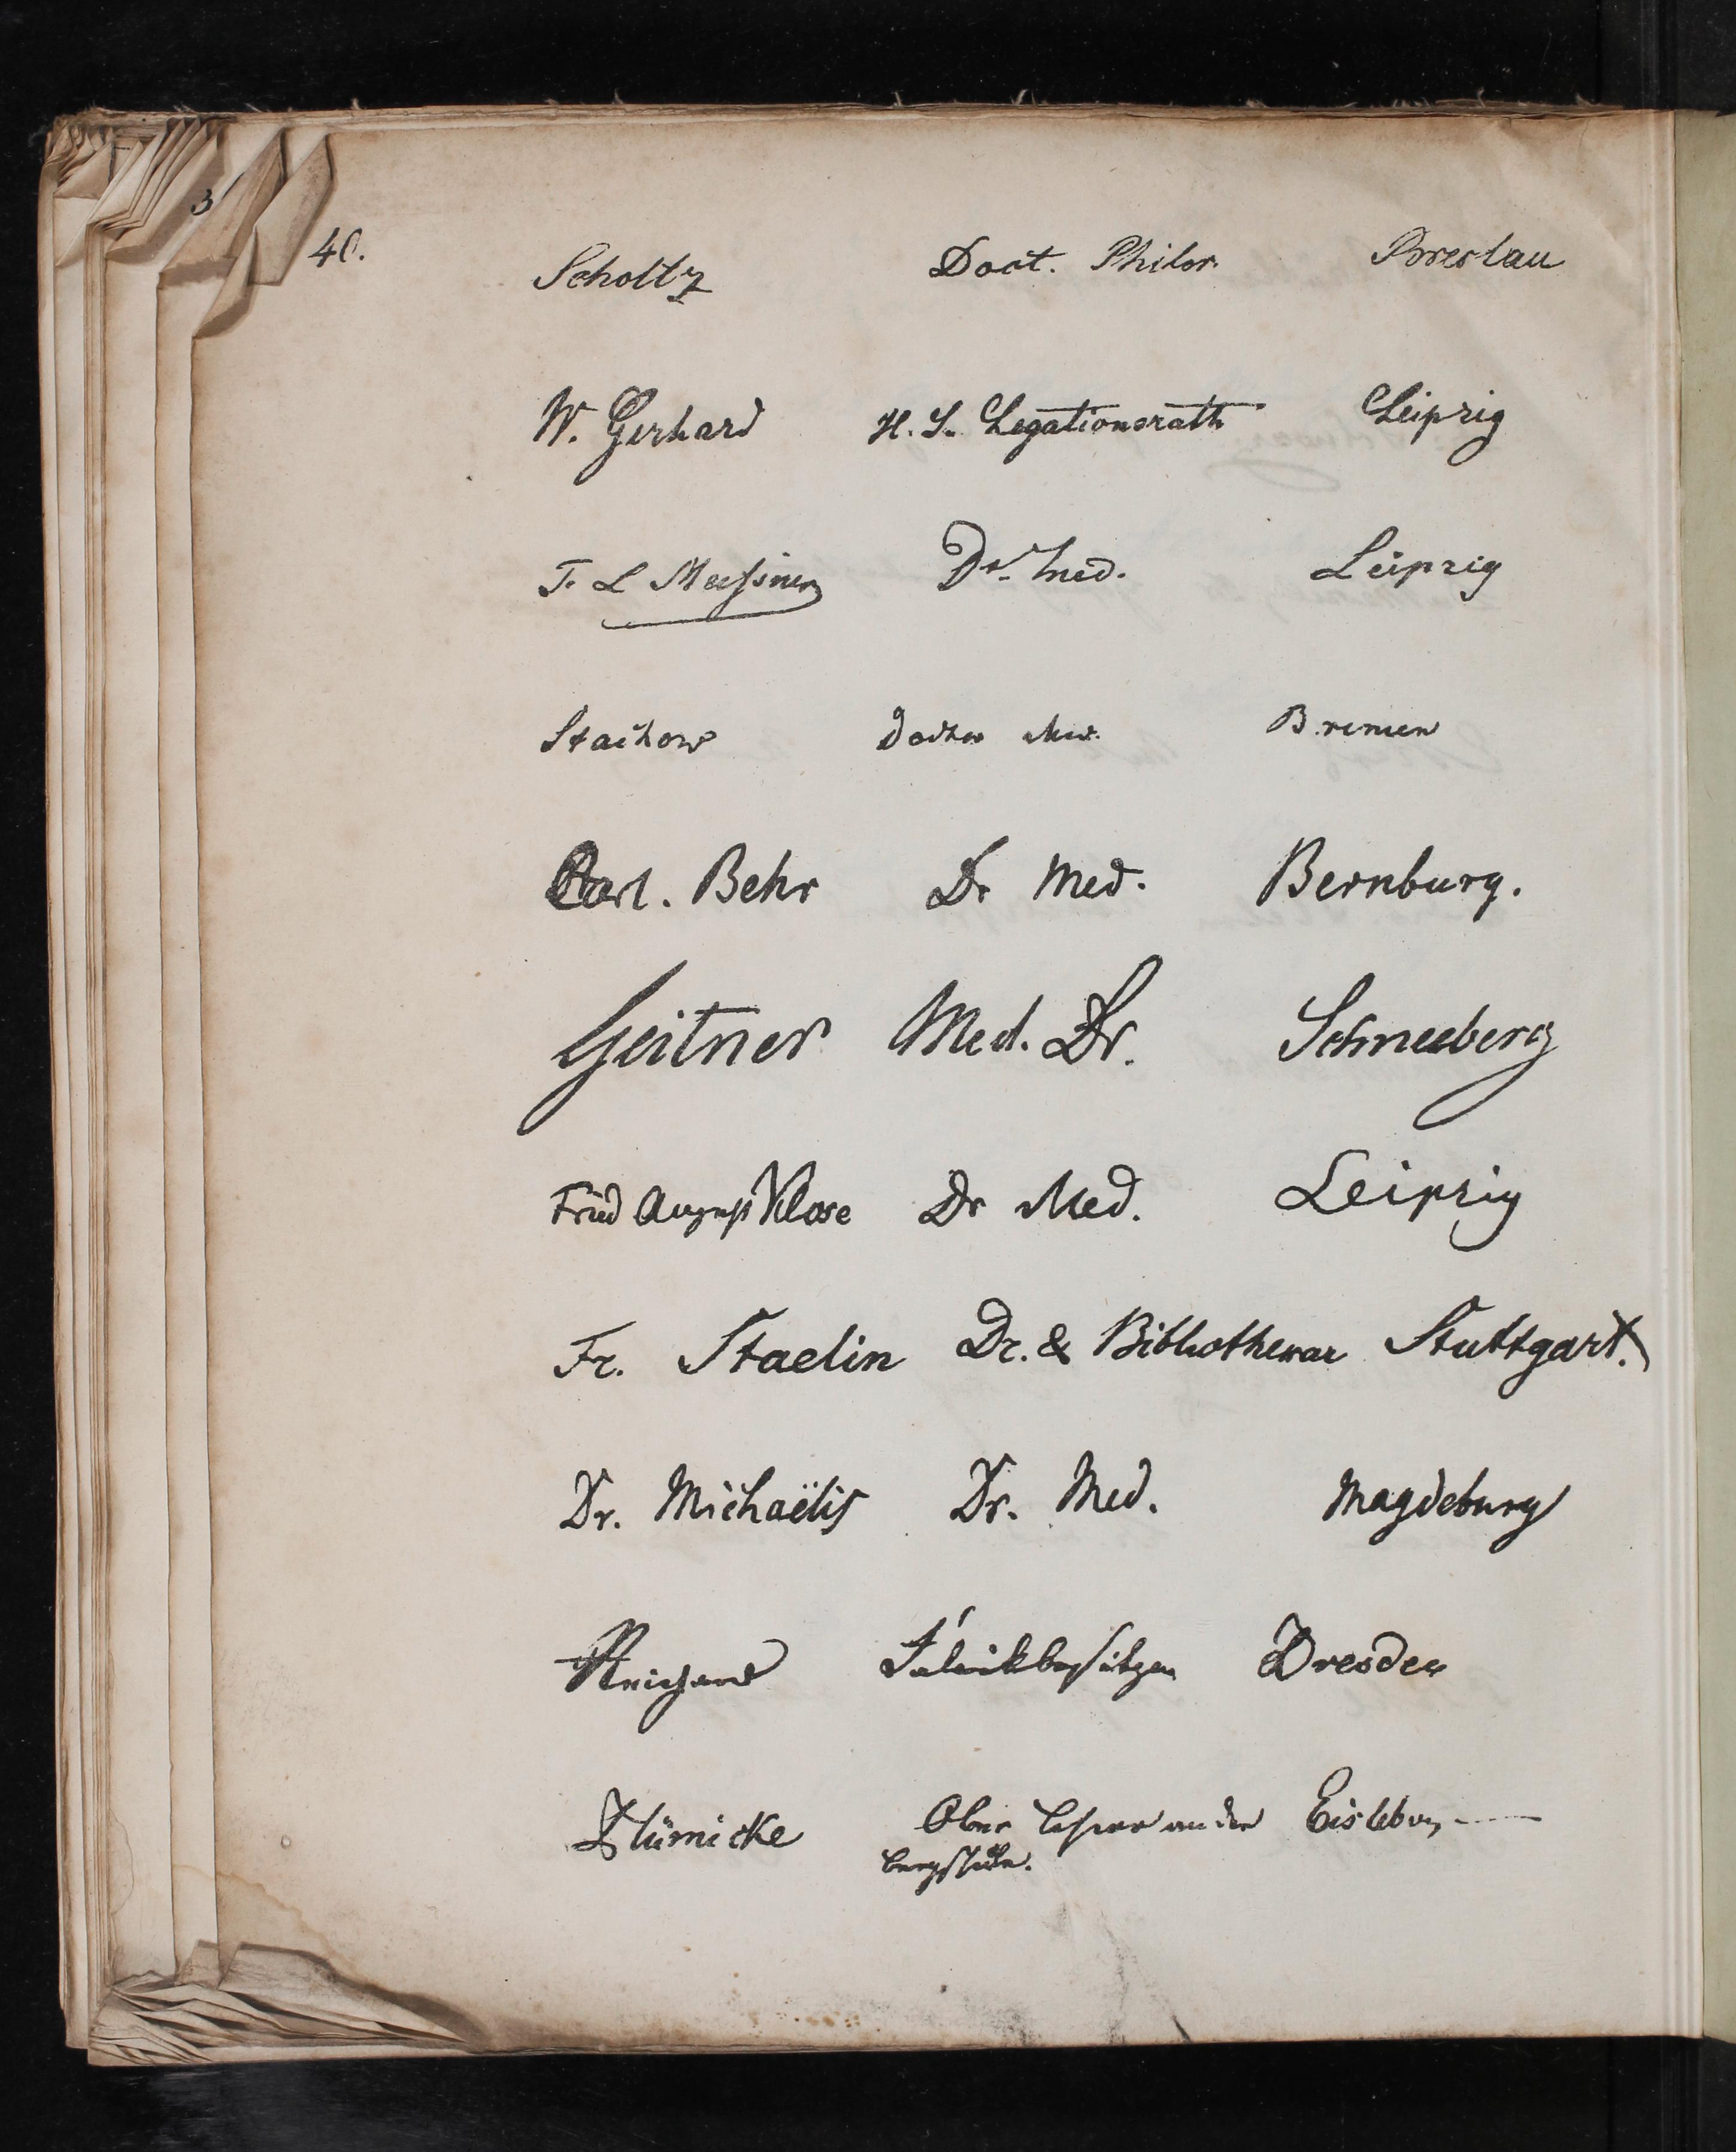 3
40.
Scholtz Doct. Philos. Breslau
W. Gerhard H. S. Legationsrath Leipzig
F. L Meißner Dr. Med. Leipzig
Stachow Doctor Med. Bremen
Carl. Behr Dr Med. Bernburg.
Geitner Med. Dr. Schneeberg
Fried August Klose Dr Med. Leipzig
Fr. Staelin Dr. & Bibliothekar Stuttgart.
Dr. Michaëlis Dr. Med. Magdeburg
Fabrikbesitzer Dresden
Plümicke Ober Lehrer an der Eisleben
Bergschule.